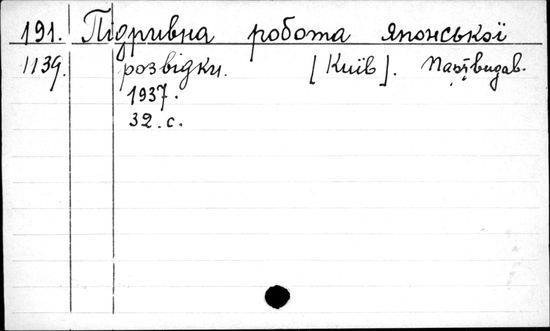 191. Підривна робота японської
1139. розвідки. [Київ]. Партвидав.
1937.
32. с.